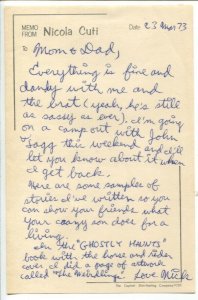 MEMO
FROM Nicola Cuti Date 23 Mar 73
To Mom & Dad,
Everything is fine and
dandy with me and
the brat (yeah, he's still
as sassy as ever). I'm going
on a camp out with John
this weekend and I'll
let you know about it when
I get back.
Here are some samples of
stories I've written so you
can show your friends what
your crazy son does for a
living.
In the "GHOSTLY HAUNTS"
book with the horse and rider
cover I did a page of artwork
called "The Weirdlings". Love Nick
The Capital Distributing Company